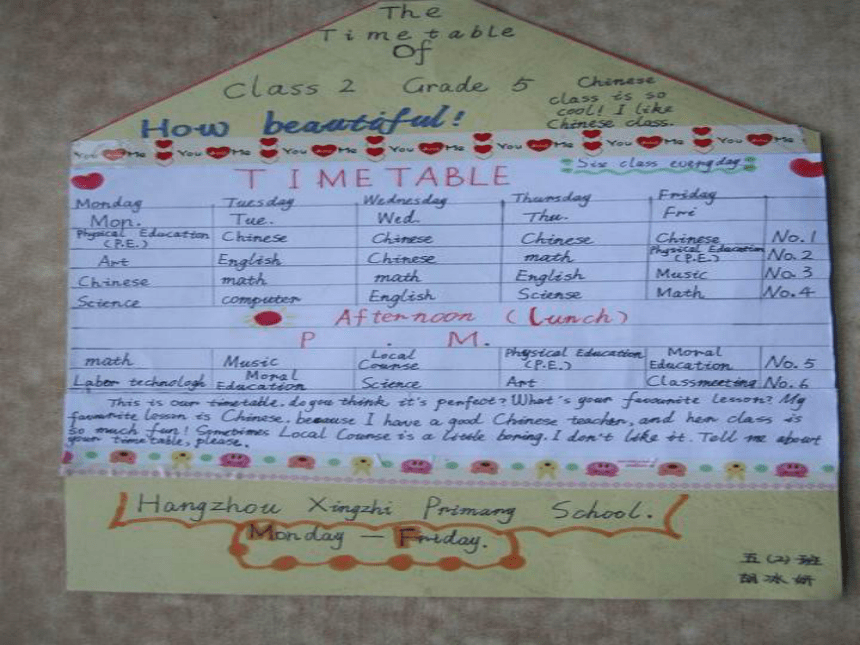 The
Timetable
Of
Class 2 Grade 5
Chinese
class is so
cool! I like
Chinese class.
How beautiful!
You And Me You And Me You And Me You And Me You And Me You And Me You And Me
Six class everyday
TIMETABLE
Monday Tuesday Wednesday Thursday Friday
Mon. Tue. Wed. Thu. Fri
Physical Education (P.E.) Chinese Chinese Chinese Chinese No.1
Art English Chinese math Physical Education (P.E.) No.2
Chinese math math English Music No.3
Science computer English Sciense Math No.4
Afternoon (Lunch)
P . M.
math Music Local Course Physical Education (P.E.) Moral Education No.5
Labor technologh Moral Education Science Art Classmeeting No.6
This is our timetable. do you think it's perfect? What's your favourite lesson? My
favourite lesson is Chinese. because I have a good Chinese teacher, and her class is
so much fun! Sometimes Local Course is a little boring. I don't like it. Tell me about
your timetable, please.
Hangzhou Xingzhi Primary School.
Monday — Friday.
五(2)班
胡冰妍